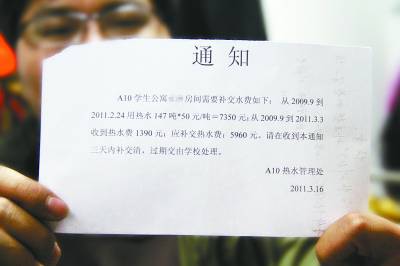 通知
A10 学生公寓 房间需要补交水费如下: 从 2009.9 到
2011.2.24 用热水 147 吨*50 元/吨=7350 元;从 2009.9 到 2011.3.3
收到热水费 1390 元; 应补交热水费: 5960 元。请在收到本通知
三天内补交清, 过期交由学校处理。
A10 热水管理处
2011.3.16